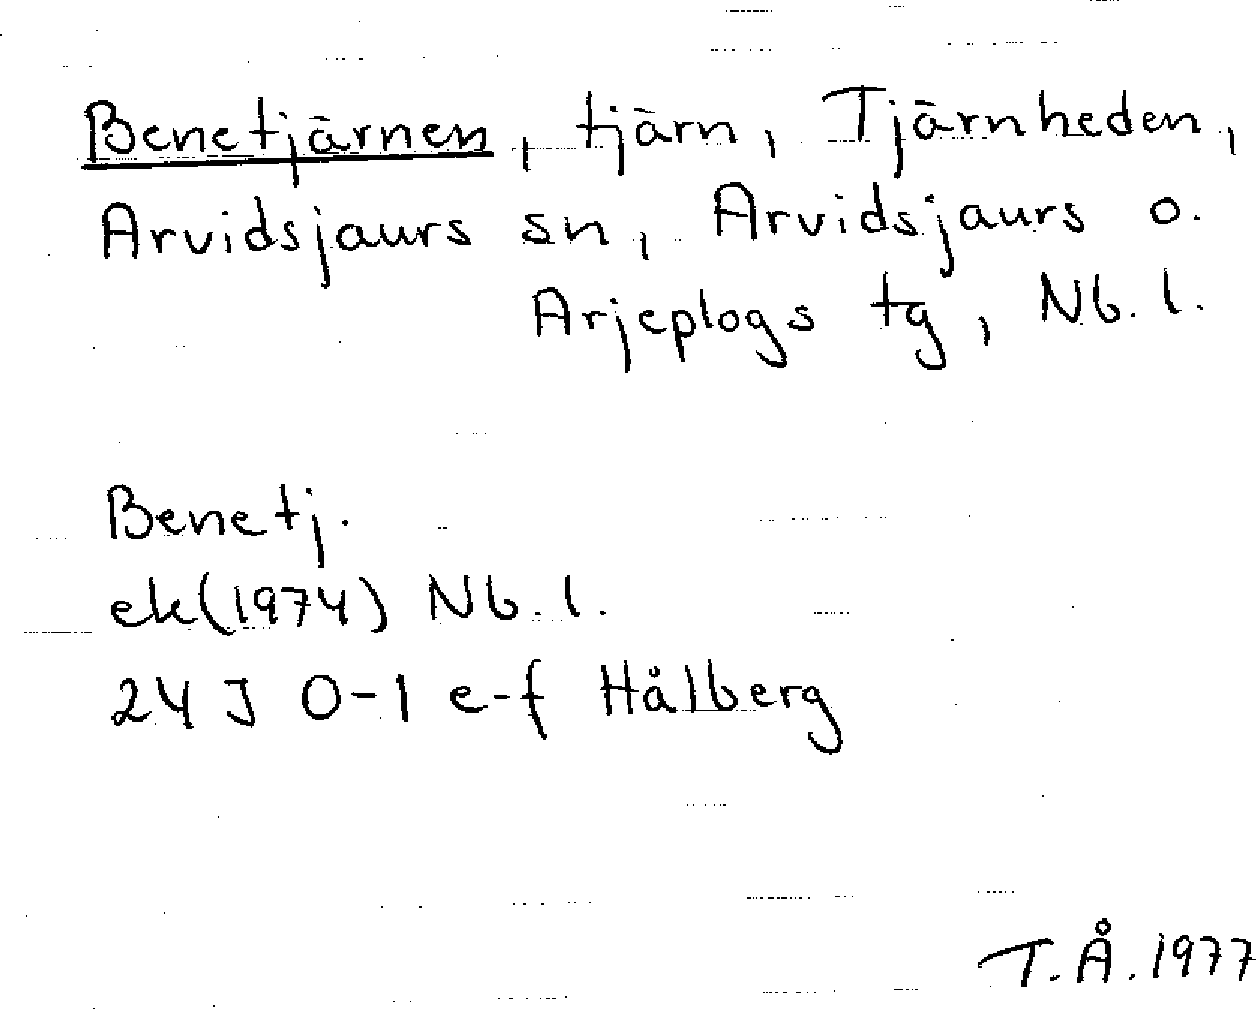 Benetjärnen, tjärn, Tjärnheden,
Arvidsjaurs sn, Arvidsjaurs o.
Arjeplogs tg, Nb. l.
Benetj.
ek(1974) Nb. l.
24 J 0-1 e-f Hålberg
T.Å. 1977